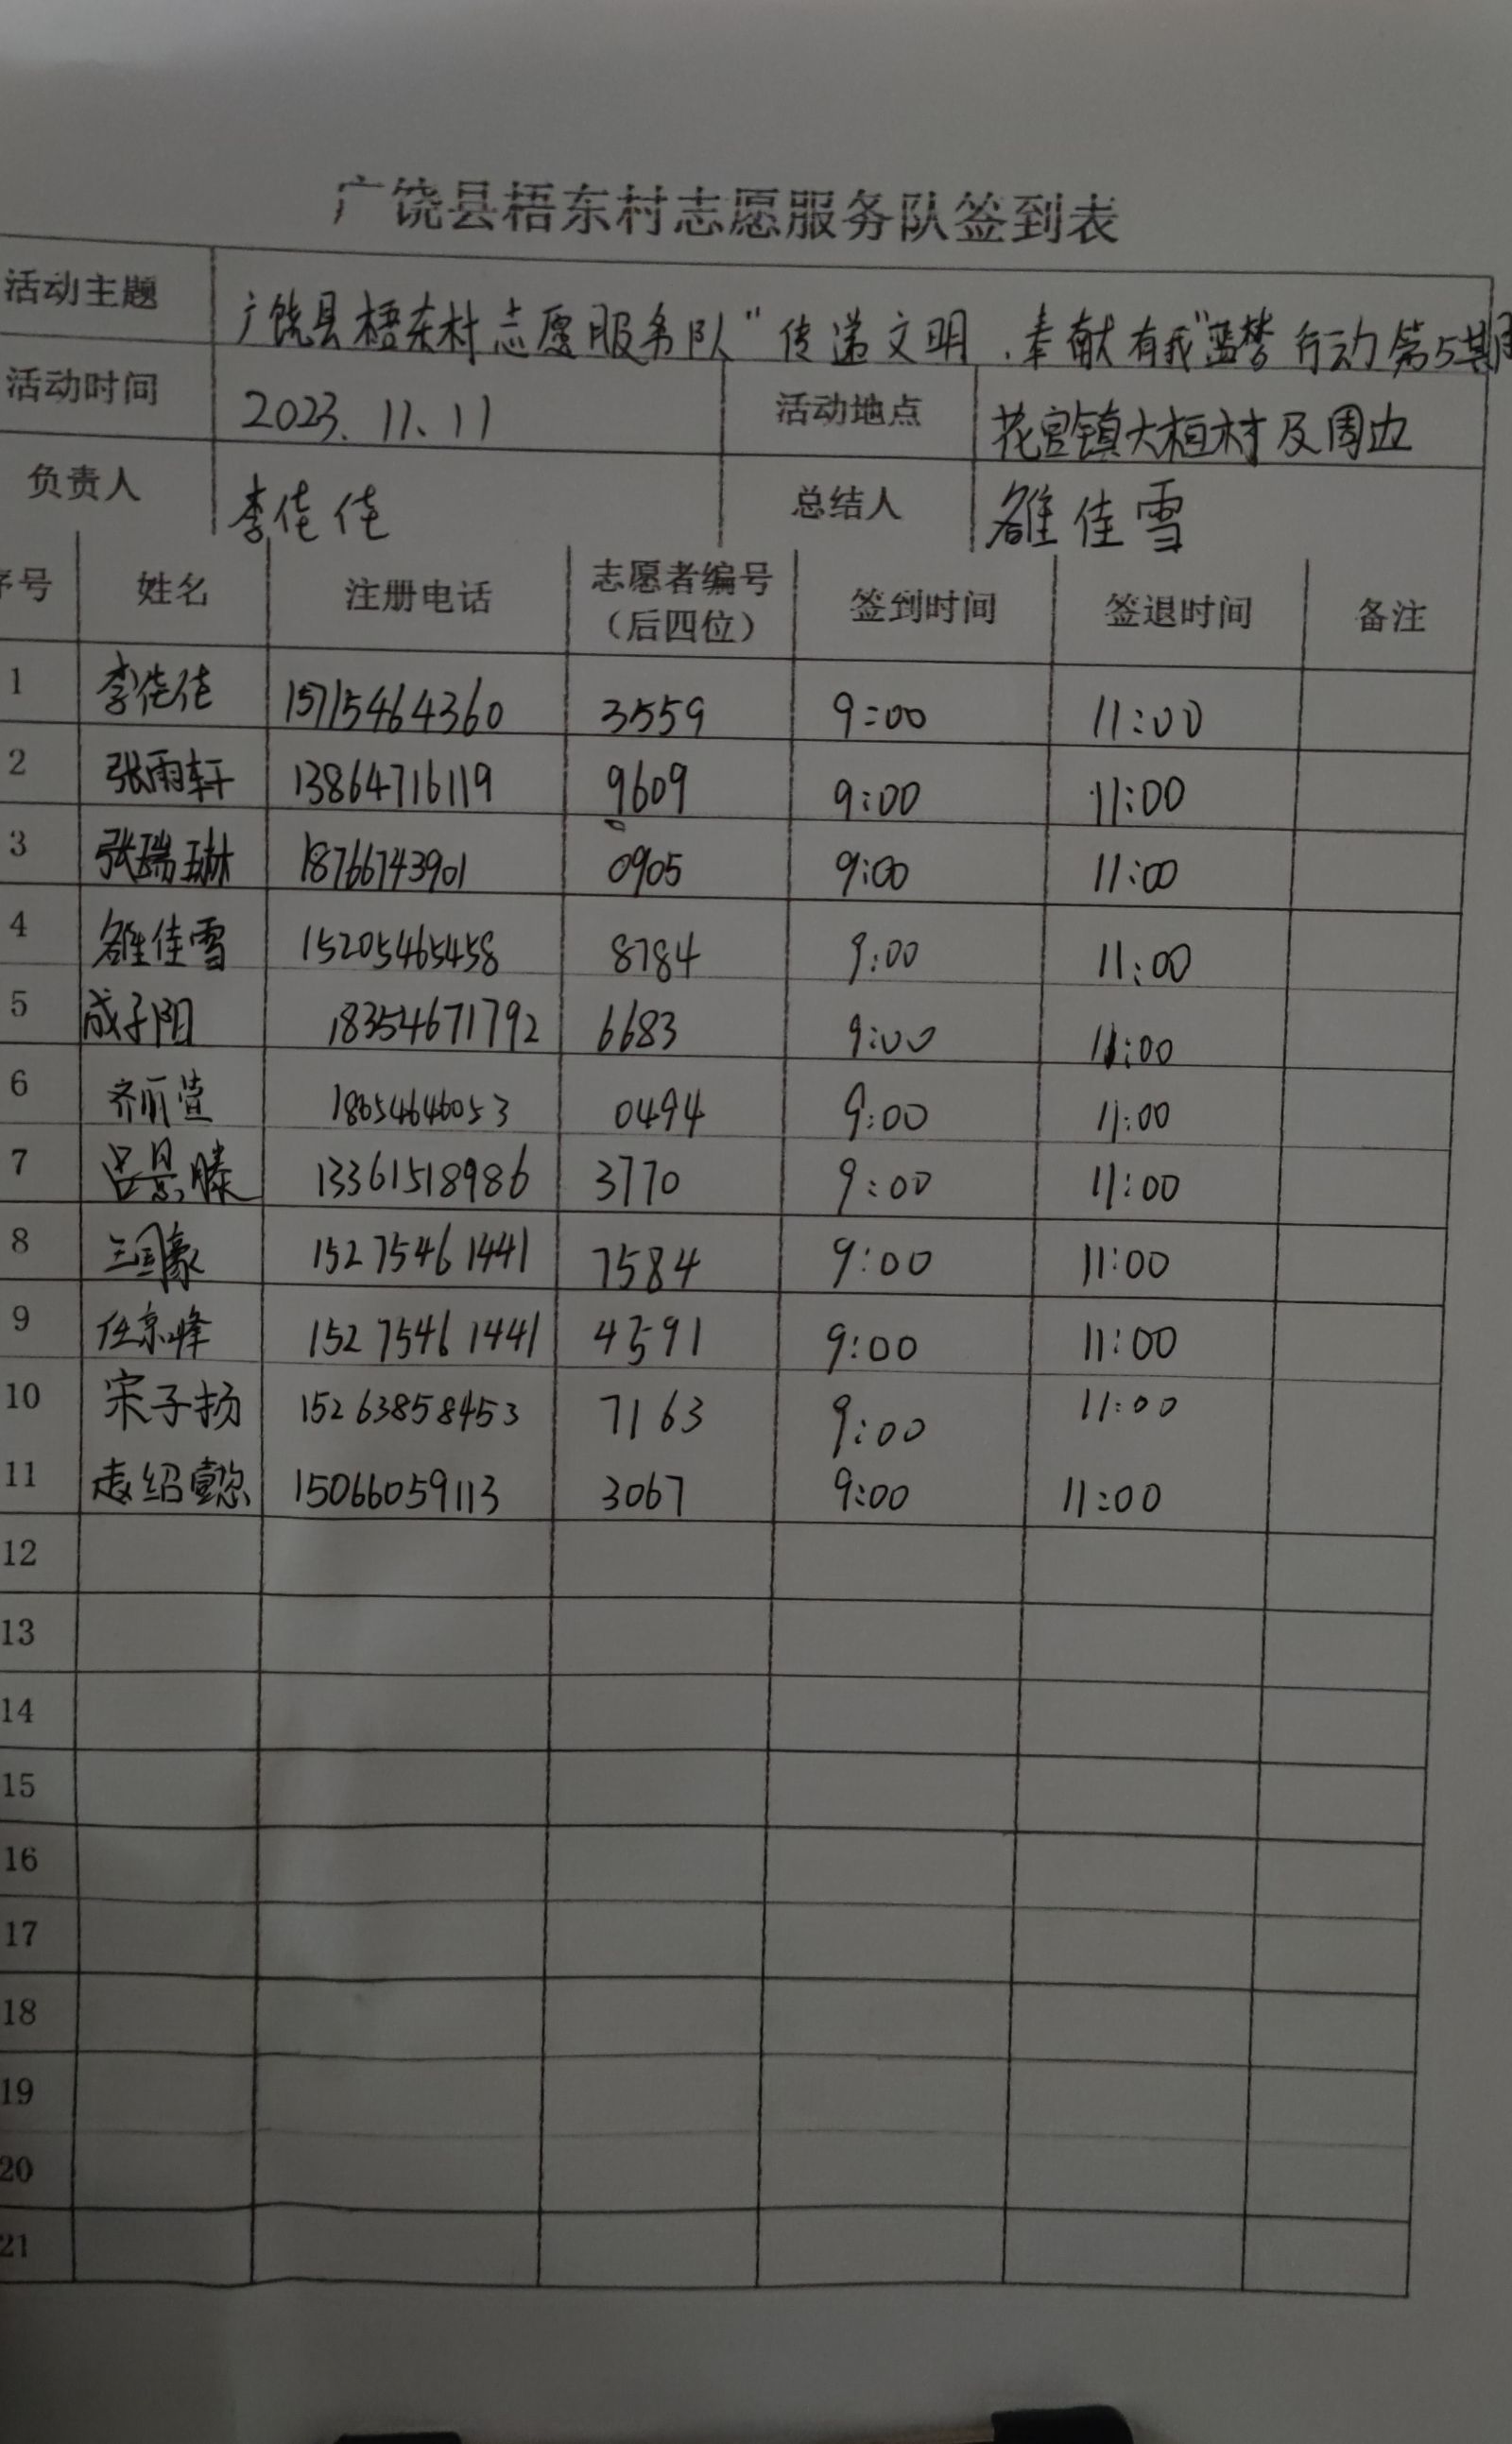 广饶县梧东村志愿服务队签到表
活动主题 广饶县梧东村志愿服务队"传递文明、奉献有我"蓝梦行动第5期
活动时间 2023.11.11 活动地点 花官镇大桓村及周边
负责人 李佳佳 总结人 雒佳雪
序号 姓名 注册电话 志愿者编号（后四位） 签到时间 签退时间 备注
1 李佳佳 15715464360 3559 9:00 11:00
2 张雨轩 13864716119 9609 9:00 11:00
3 张瑞琳 18766743901 0905 9:00 11:00
4 雒佳雪 15205465458 8784 9:00 11:00
5 成子阳 18354671792 6683 9:00 11:00
6 齐丽萱 18654646053 0494 9:00 11:00
7 吕景滕 13361518986 3770 9:00 11:00
8 15275461441 7584 9:00 11:00
9 任京峰 15275461441 4591 9:00 11:00
10 宋子扬 15263858453 7163 9:00 11:00
11 赵绍懿 15066059113 3067 9:00 11:00
12
13
14
15
16
17
18
19
20
21